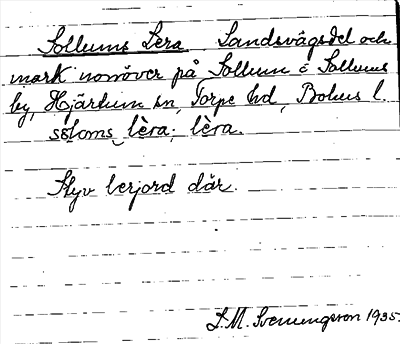 Sollums Lera Landsvägsdel och
mark norröver på Sollum i Sollums
by, Hjärtum sn, Torpe hd, Bohus l.
sɷloms lèra; lèra.
Styv lerjord där.
L.M. Svenungsson 1935.